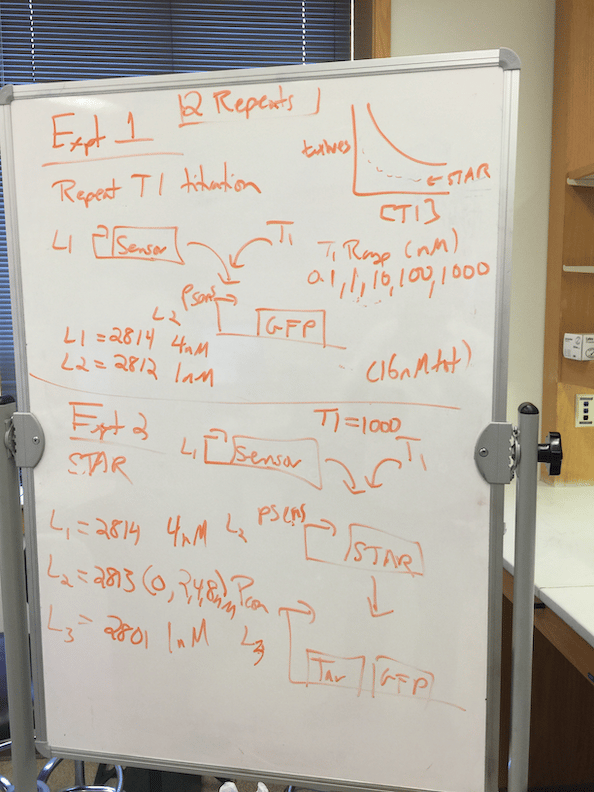 2 Repeats
Expt 1
Repeat T1 titration
← STAR
[T1]
L1 Sensor T1
T1 Range (nM)
0.1, 1, 10, 100, 1000
L2 Psens
GFP
L1 = 2814 4nM
L2 = 2812 1nM
(16nM tot)
Expt 2
T1 = 1000
STAR
L1 Sensor T1
L1 = 2814 4nM
L2 Psens
STAR
L2 = 2813 (0, 2,4,8)nM
Pcon
L3 = 2801 1nM
L3
Tar GFP